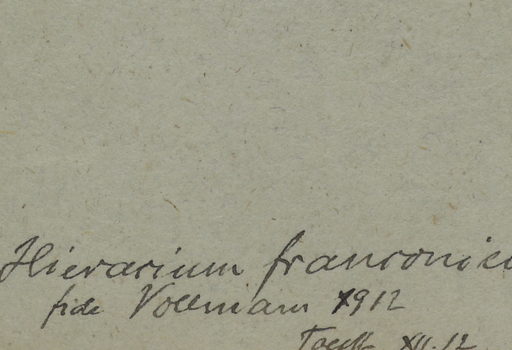 Hieracium franconic
fide Vollmann 1912
XII.12.